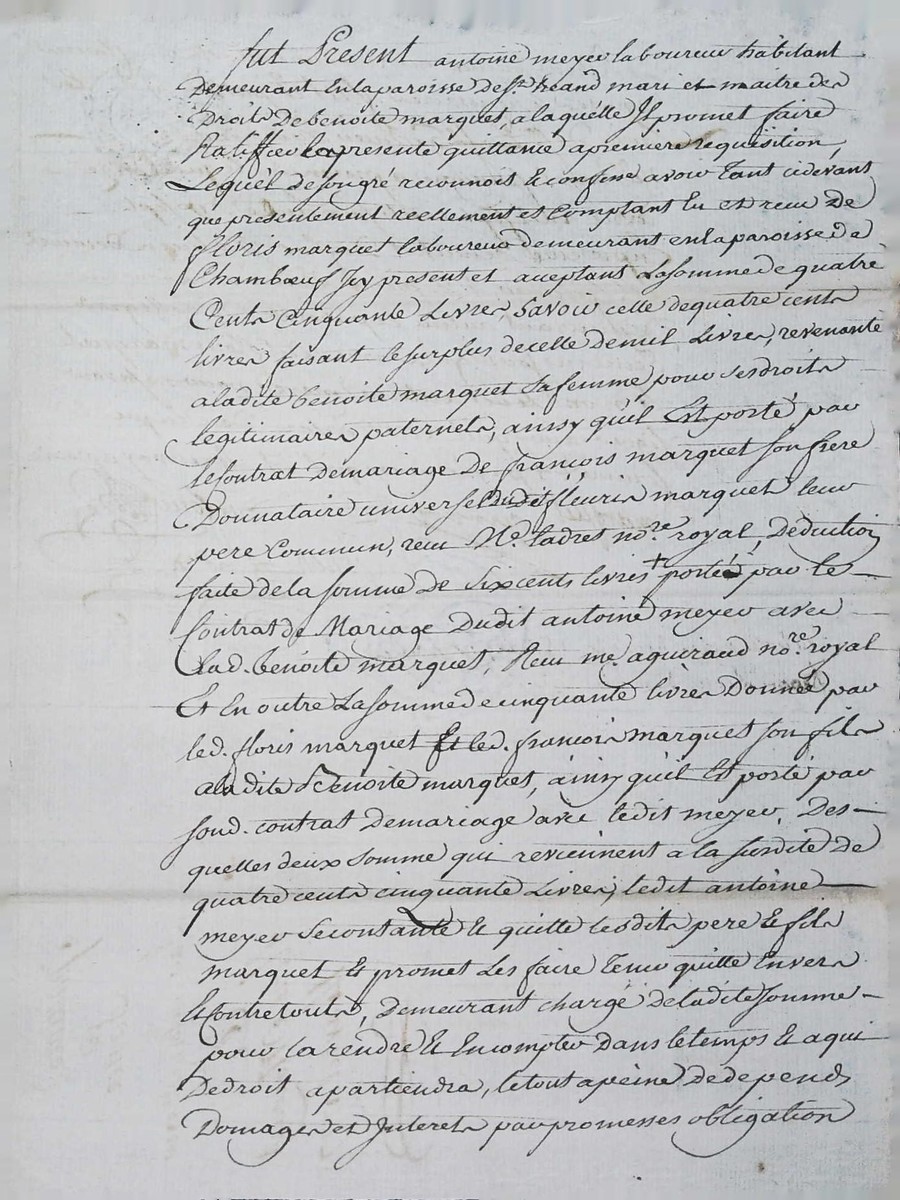 fut Present antoine meyer laboureur habitant
Demeurant En la paroisse de St. heand mari et maitre des
Droits De benoite marquet, a laquelle Il promet faire
Ratiffier la presente quittance a premiere requisition,
Lequel de son gré reconnois et confesse avoir Tant cidevant
que presentement reellement et Comptant Eu et receu De
floris marquet laboureur demeurant en la paroisse de
Chambœuf Icy present et aceptant La somme de quatre
Cents Cinquante Livres, Savoir celle de quatre cents
livres faisant le surplus de celle de mil Livres, revenante
a la dite benoite marquet Sa femme pour ses droits
legitimaires paternels, ainsy qu'il Est porté par
le Contrat de mariage De françois marquet son frere
Donnataire universel dudit fleuris marquet leur
pere Commun, receu Me. ladret nore. royal, Deduction
faite de la somme De Six cents livres + portée par le
Contrat de Mariage Dudit antoine meyer avec
lad. benoite marquet, Receu me. aguiraud nore. royal
Et En outre La somme de cinquante livres Donnée par
led. floris marquet Et led. françois marquet son fils
a la dite Benoite marquet, ainsy qu'il Est porté par
sond. contrat De mariage avec ledit meyer, Des-
quelles deux somme qui reviennent a la susdite De
quatre cents cinquante Livres, ledit antoine
meyer Se contante Et quitte lesdits pere Et fils
marquet Et promet Les faire Tenir quitte Envers
Et Contre touts, Demeurant chargé de ladite somme
pour la rendre Et En compter Dans le temps Et a qui
De droit apartiendra, le tout a peine de depends
Domages et Interets par promesses obligation